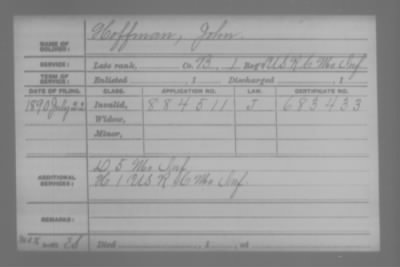 NAME OF SOLDIER: Hoffman, John.
SERVICE: Late rank, Co. B, 1 Reg't U S R C Mo Inf
TERM OF SERVICE: Enlisted , 1 Discharged , 1
DATE OF FILING. CLASS. APPLICATION NO. LAW. CERTIFICATE NO.
1890 July 22 Invalid, 884511 J 683433
Widow,
Minor,
ADDITIONAL SERVICES: D 5 Mo Inf
H 1 U S R C Mo Inf.
REMARKS:
Died , 1 , at